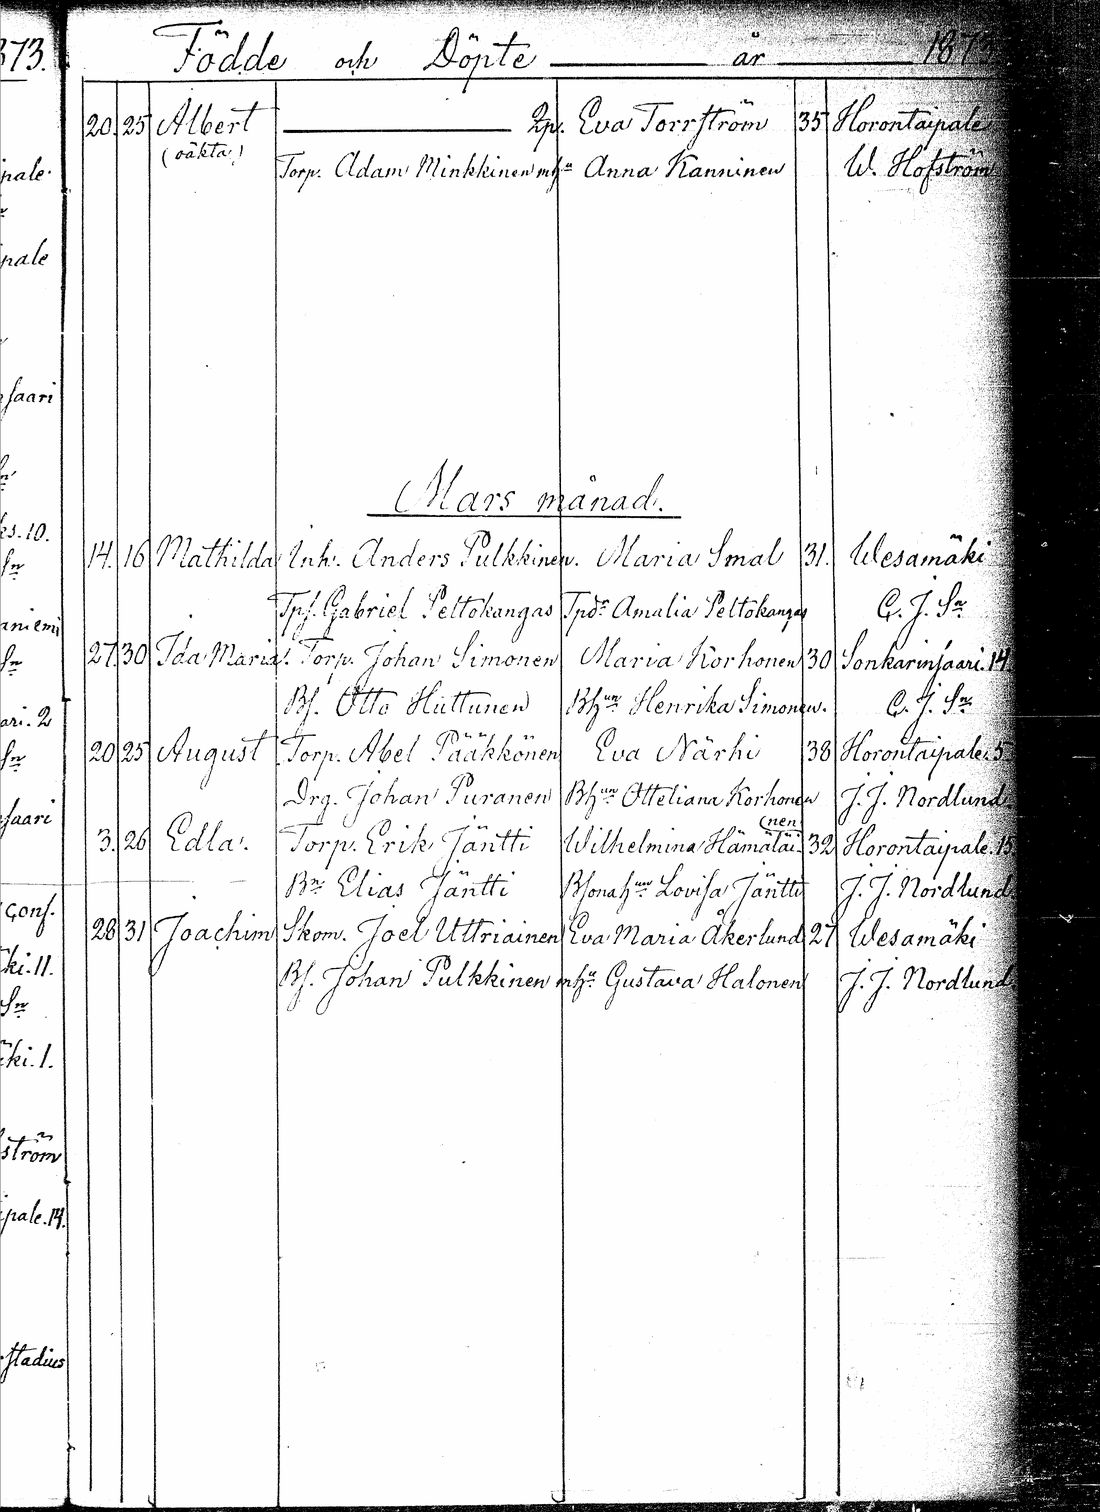 373. Födde och Döpte år 1873.
20. 25 Albert Zp. Eva Torrström 35 Horontaipale
(oäkta)
Torp. Adam Minkkinen mhu Anna Kanninen W. Hofström
Mars månad.
14. 16 Mathilda Inh. Anders Pulkkinen. Maria Smal 31. Wesamäki
Tpf. Gabriel Peltokangas Tpdr Amalia Peltokangas C. J. Sn
27. 30 Ida Maria. Torp. Johan Simonen Maria Korhonen 30 Sonkarinsaari. 14
Bf. Otto Huttunen Bhun Henrika Simonen. C. J. Sn
20 25 August Torp. Abel Pääkkönen Eva Närhi 38 Horontaipale. 5
Drg. Johan Puranen Bhun Otteliana Korhonen J. J. Nordlund
3. 26 Edla. Torp. Erik Jäntti Wilhelmina Hämäläi(nen 32 Horontaipale. 15
Bn Elias Jäntti Bsonahun Lovisa Jäntti J. J. Nordlund
28 31 Joachim Skom. Joel Uttriainen Eva Maria Åkerlund 27 Wesamäki
Bf. Johan Pulkkinen mhu Gustava Halonen J. J. Nordlund
pale.
pale
saari
ks. 10.
Sn
aniemi
Sn
ari. 2
Sn
saari
Conf.
ki. 11.
Sn
ki. 1.
ström
pale. 14.
stadius